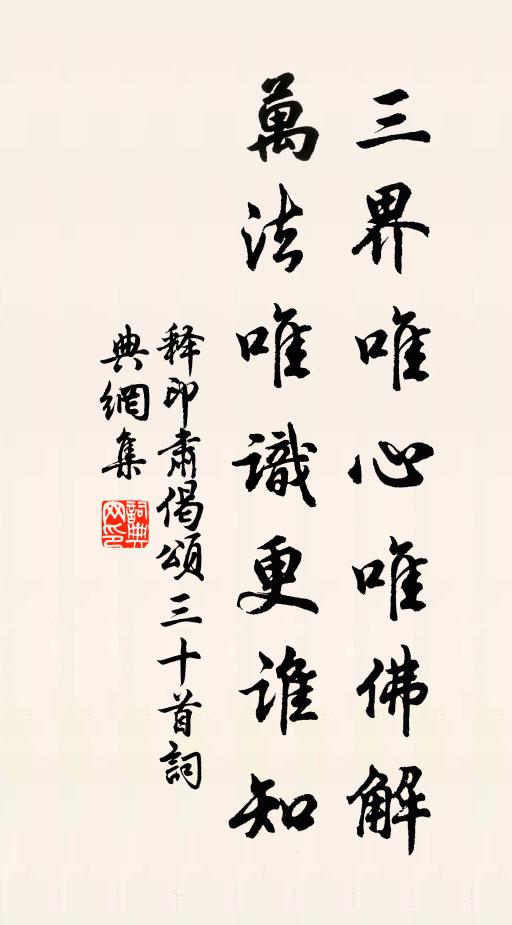 三界唯心唯佛解
萬法唯識更誰知
释印肅偈頌三十首詞
典網集
詞典
网印